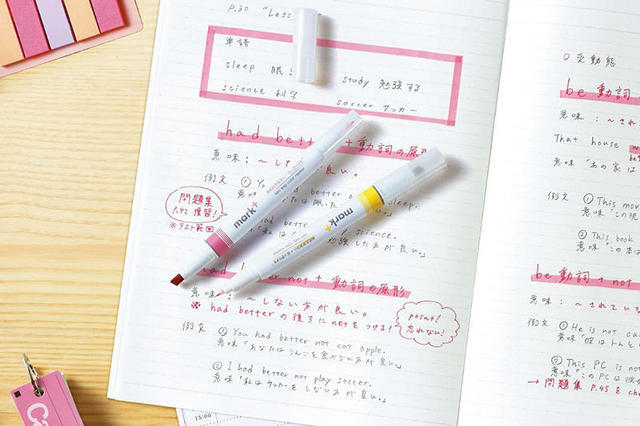 P.30 "Less
単語
sleep 眠:
study 勉強する
science 科学
soccer サッカー
had better + 動詞の原形
意味:〜し 良い。
例文 ① You better sleep.
意味
science.
強した方が良い。」
問題集
復習!
※テスト範囲
mark+
mark+
had better not + 動詞の原形
意味:〜しない方が良い。
※ had better の後ろに notをつける!
point!
忘れない!
例文 ① You had better not eat apple.
意味「あなたはりんごを食べない方が良い。」
② I had better not play soccer.
意味「私はサッカーをしない方が良い。」
15:00
○受動態
be 動詞
意味:〜され
That house
意味「あの家は
例文 ① This mor
意味「この
② This book
意味「この本
be 動詞 + not
意味:〜されてい
例文 ① He is not c
意味「彼は
② This PC is not
意味「このPCは使
→ 問題集 P.45 を che